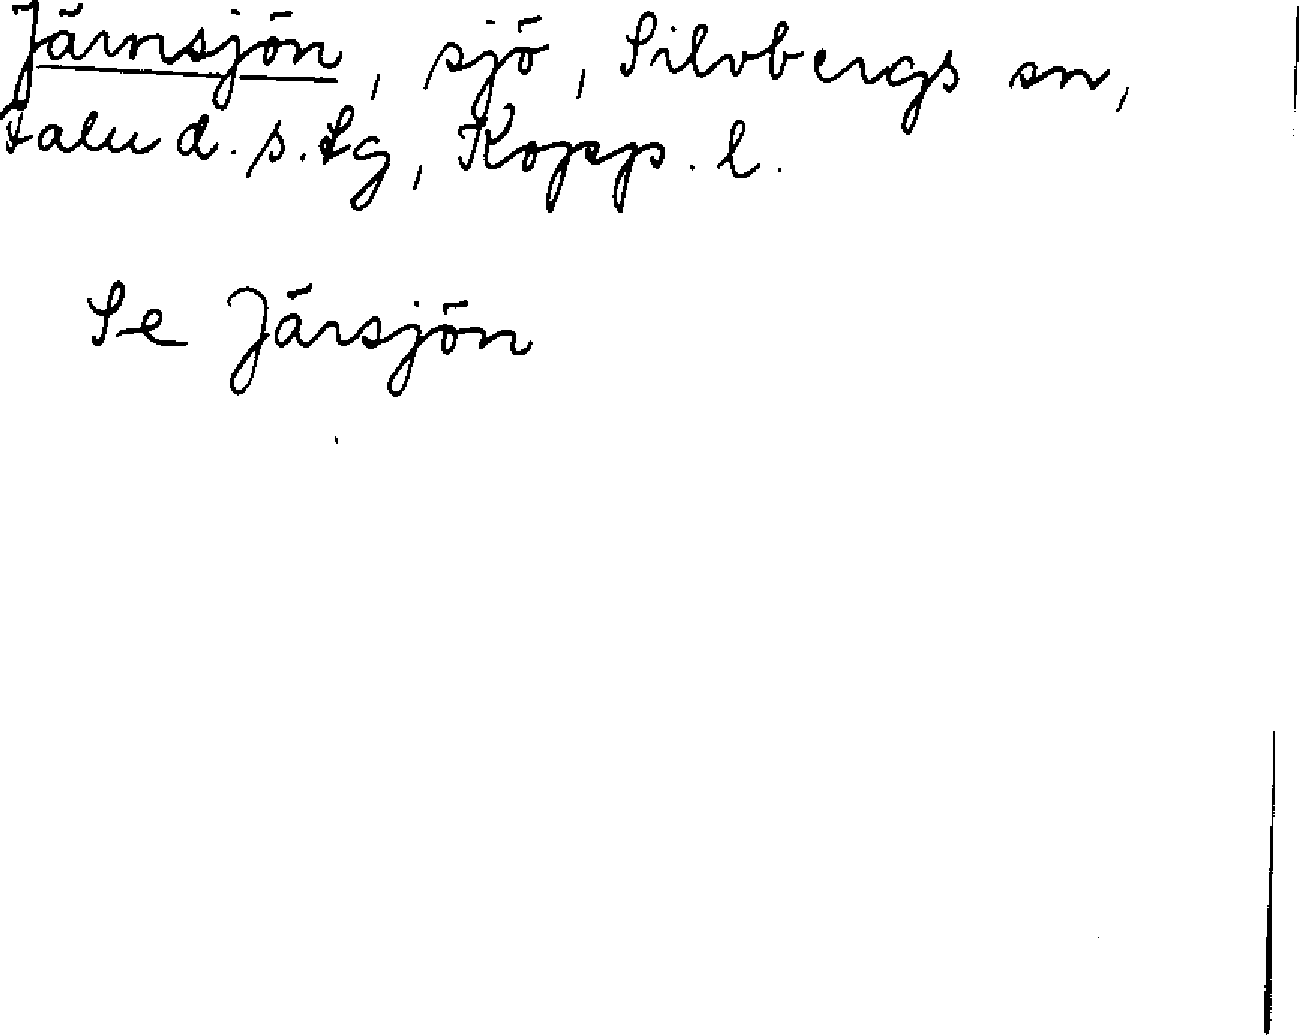 Järnsjön, sjö, Silvbergs sn,
Falu d. s. tg, Kopp. l.
Se Järsjön